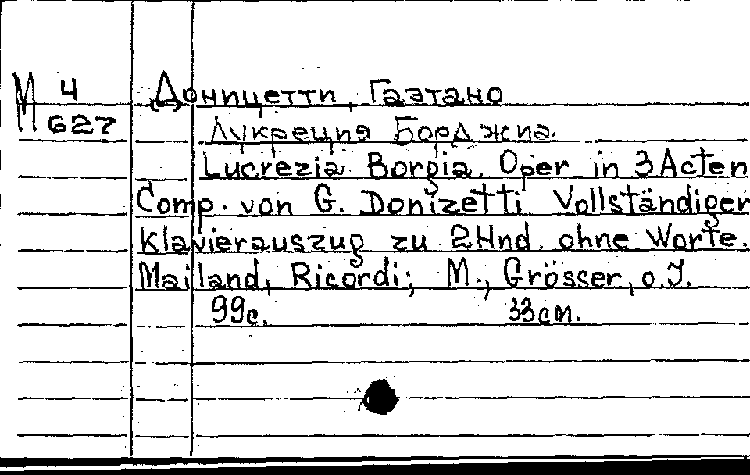 М 4 Доницетти, Гаэтано
627 Лукреция Борджиа.
Lucrezia Borgia. Oper in 3 Acten
Comp. von G. Donizetti Vollständiger
Klavierauszug zu 2 Hnd. ohne Worte.
Mailand, Ricordi; M., Grösser, o.J.
99с. 33см.